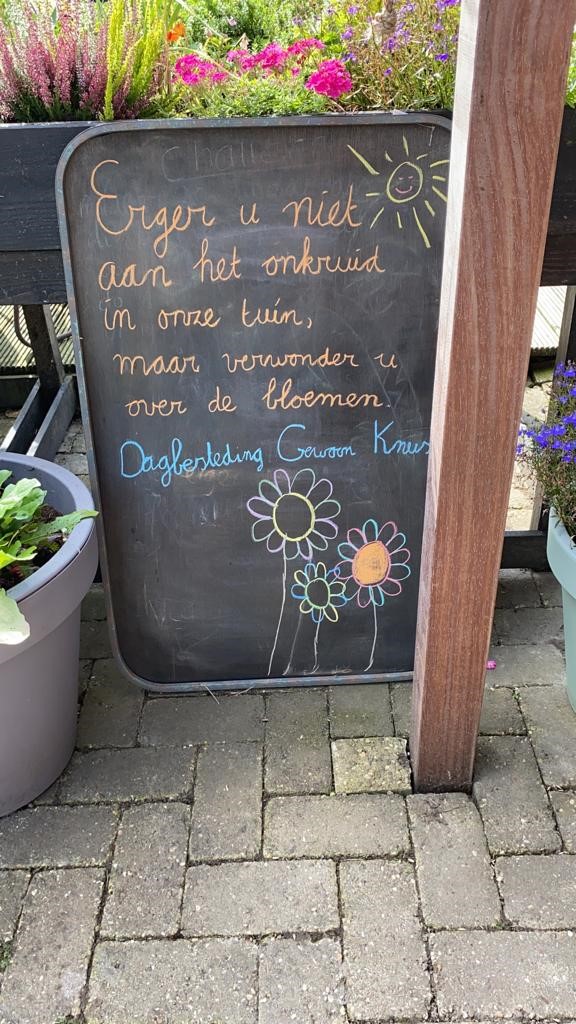 Erger u niet
aan het onkruid
in onze tuin,
maar verwonder u
over de bloemen.
Dagbesteding Gewoon